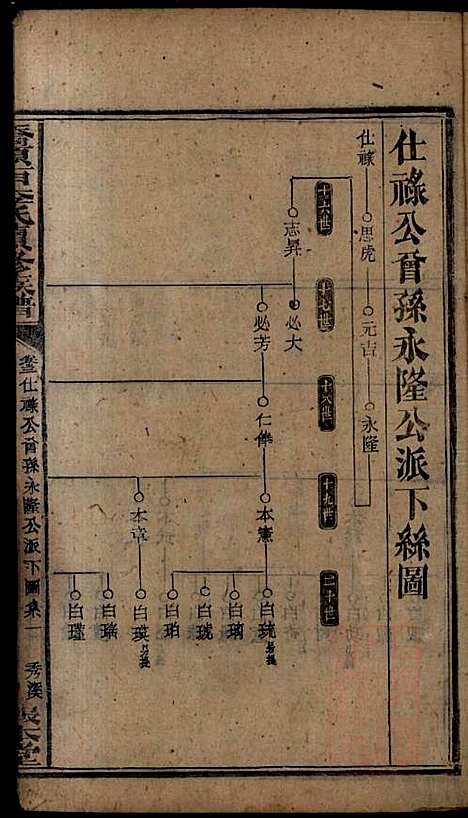 仕祿公曾孫永隆公派下絲圖
仕祿
思虎
元吉
永隆
十六世
志昇
十七世
必大
必芳
十八世
仁俸
十九世
本憲
本章
二十世
白琉
白瑀
白琥
白珀
白瑛
白瑤
白瑾
卷三仕祿公曾孫永隆公派下圖集一
秀溪